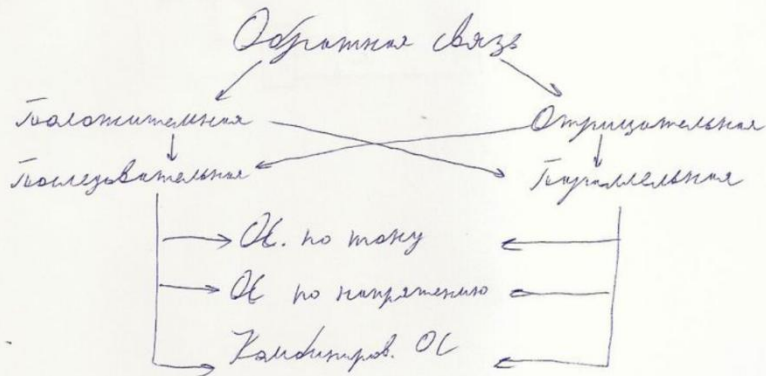 Обратная связь
Положительная Отрицательная
Последовательная Параллельная
ОС. по току
ОС по напряжению
Комбиниров. ОС